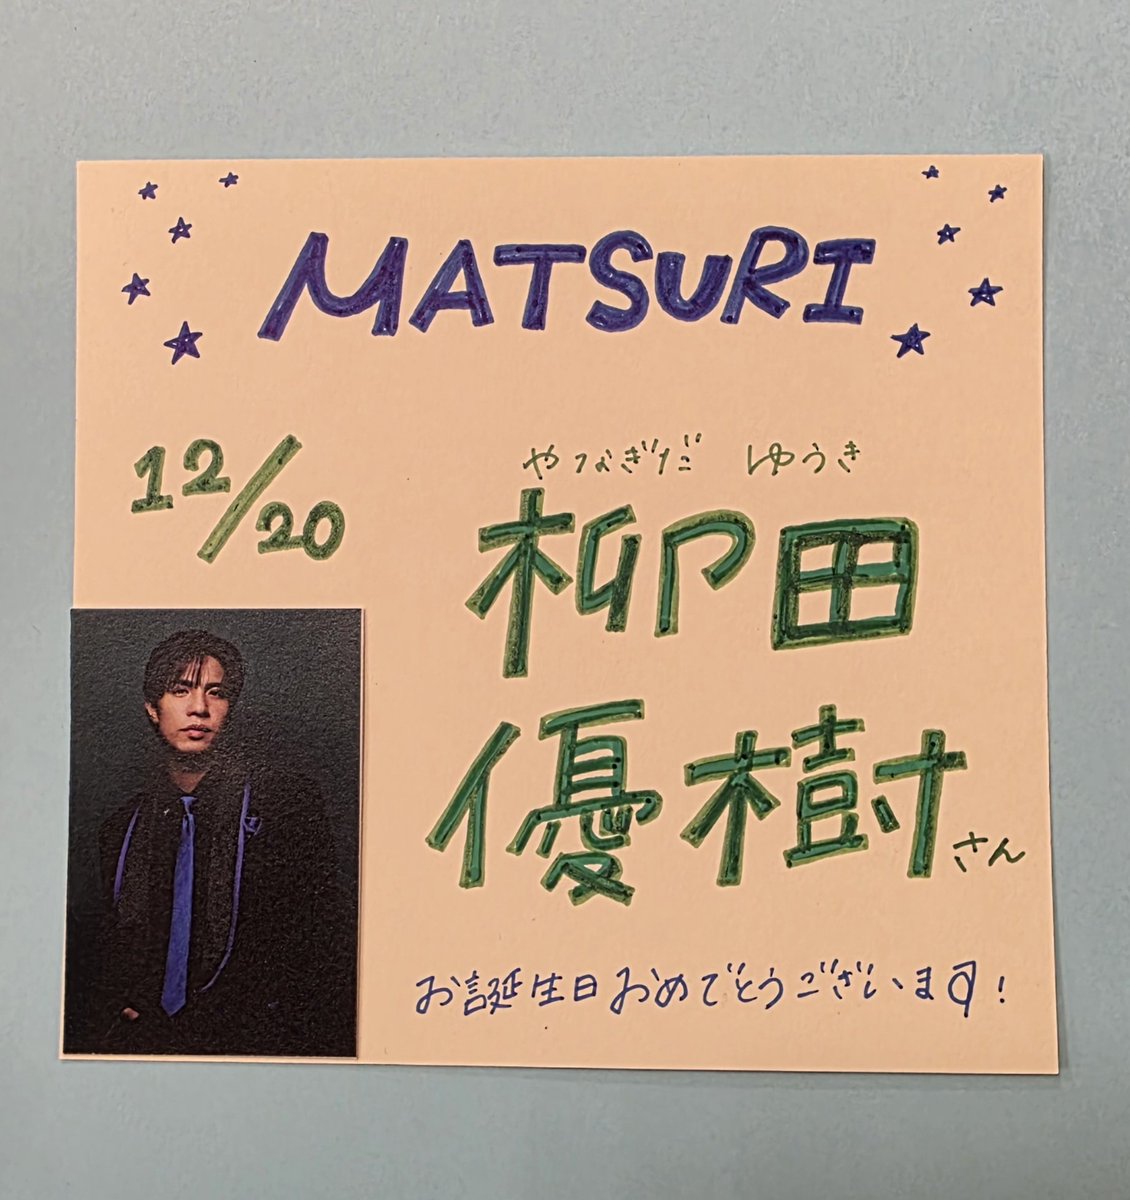 MATSURI
12/20
やなぎだ ゆうき
柳田
優樹さん
お誕生日おめでとうございます!